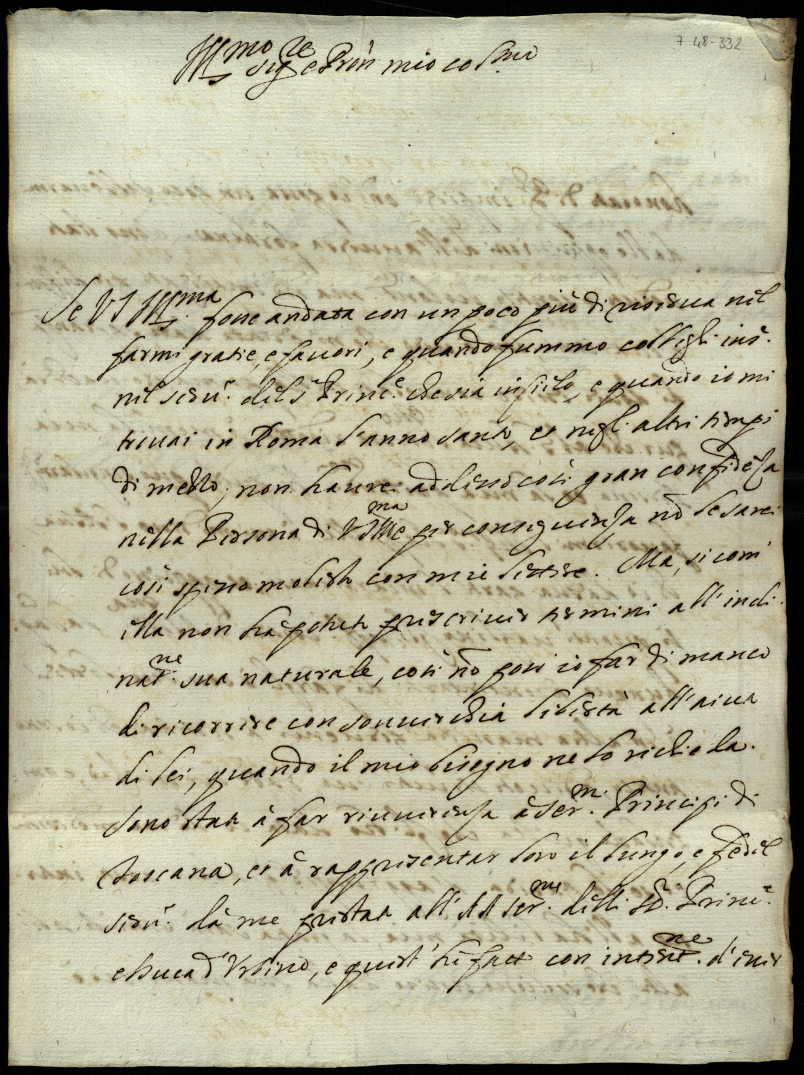 7 48-332
Ill.mo Sig.re e Prõn mio col.mo
Se VS Ill.ma fosse andata con un poco più di riserva nel
farmi gratie, e favori, e quando fummo colleghi ins.e
nel seru.o del S.r Princ.e che sia in Cielo, e quando io mi
trovai in Roma l'anno santo, et negli altri tempi
di mezzo; non haurei adesso così gran confidẽza
nella Persona di VS Ill.ma e per conseguenza nõ le sarei
così spesso molesto con mie lettere. Ma, si com'
ella non ha potuto prescriver termini all'incli
nat.ne sua naturale, così nõ poss'io far di manco
di ricorrere con souuerchia libertà all'aiuto
di lei, quando il mio bisogno ne lo richieda.
Sono stato à far riuerenza à Ser.mi Principi di
Toscana, et à rappresentar loro il lungo, e fedel
seru.o dà me prestato all'AA ser.me delli SS.ri Princ.e
e Duca d'Urbino, e quest'hò fatto con intent.ne d'esser